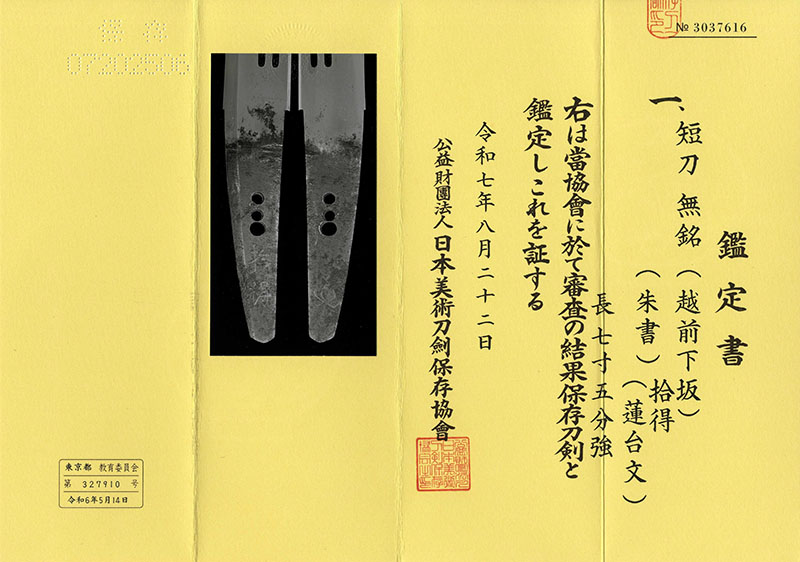 № 3037616
鑑定書
一、短刀 無銘(越前下坂)
(朱書)拾得
(蓮台文)
長七寸五分強
右は當協會に於て審査の結果保存刀剣と
鑑定しこれを証する
令和七年八月二十二日
公益財團法人 日本美術刀劍保存協會
保存
07202506
東京都 教育委員会
第 327910 号
令和6年5月14日